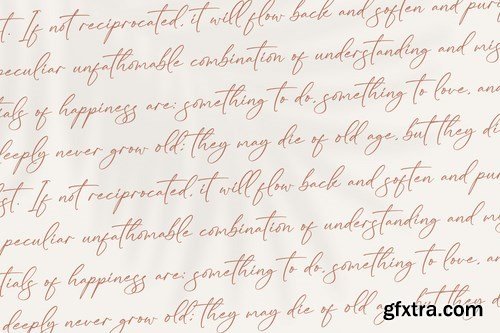 st. If not reciprocated, it will flow back and soften and pur
peculiar unfathomable combination of understanding and mis
tials of happiness are: something to do, something to love, and
deeply never grow old; they may die of old age, but they di
st. If not reciprocated, it will flow back and soften and pur
peculiar unfathomable combination of understanding and mis
tials of happiness are: something to do, something to love, an
deeply never grow old; they may die of old age, but they di
gfxtra.com